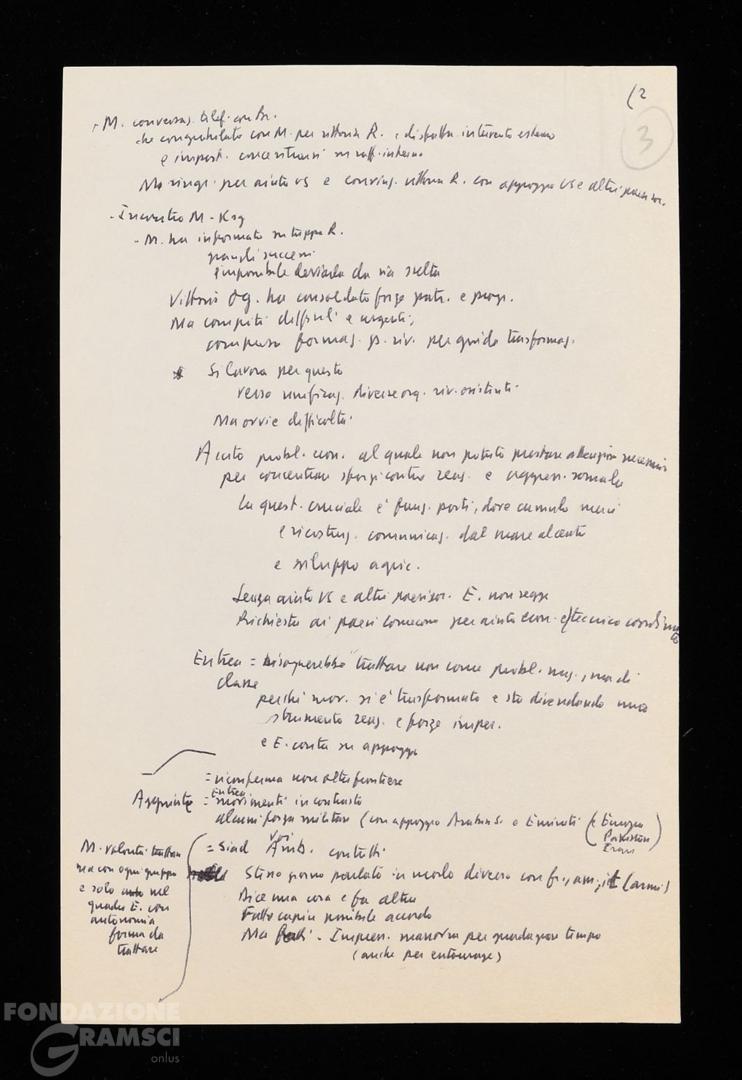 (2
3
- M. conversaz. telef. con Br.
che congratulato con M. per vittoria R. e disfatta intervento esterno
e import. concentrarsi su raff. interno
M. ringr. per aiuto US e convinz. vittoria R. con appoggio US e altri paesi soc.
- Incontro M-Ksg
- M. ha informato su tappe R.
grandi successi
impossibile deviarla da via scelta
Vittoria Og. ha consolidato forze patr. e progr.
Ma compiti difficili e urgenti,
compreso formaz. p. riv. per guida trasformaz.
Si lavora per questo
verso unificaz. diverse org. riv. esistenti
Ma ovvie difficoltà
Acuto probl. econ. al quale non potuto prestare attenzione necessaria
per concentrare sforzi contro reaz. e aggress. somala
La quest. cruciale è funz. porti, dove cumulo merci
e ricostruz. comunicaz. dal mare al centro
e sviluppo agric.
Senza aiuto US e altri paesi soc. E. non regge
Richiesta ai paesi comecon per aiuto econ. e tecnico coordinato
Eritrea = bisognerebbe trattare non come probl. naz., ma di
classe
perché mov. si è trasformato e sta divenendo uno
strumento reaz. e forze imper.
e E. conta su appoggio
= riconferma non oltre frontiere
Eritrea
= movimenti in contrasto
alcuni forza militare (con appoggio Arabia S. e Emirati (e Europa
Pakistan
Iran)
= Siad Vari Amb. contatti
Stesso giorno parlato in modo diverso con fr., am., it. (armi)
Dice una cosa e fa altra
Fatto capire possibile accordo
Ma - Impress. manovra per guadagnare tempo
(anche per entourage)
M. volontà trattare
ma con ogni gruppo
e solo nel
quadro E. con
autonomia
forma da
trattare
FONDAZIONE
GRAMSCI
onlus